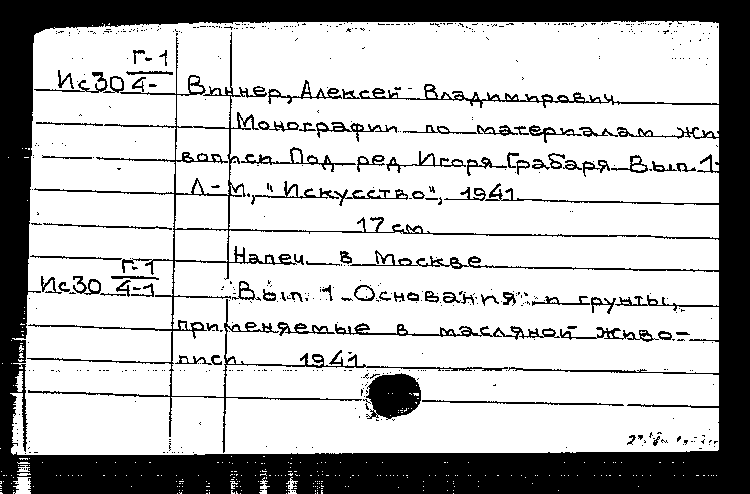 Г-1
Ис30 4- Виннер, Алексей Владимирович.
Монографии по материалам жи-
вописи. Под ред Игоря Грабаря Вып. 1-
Л-М., "Искусство", 1941.
17 см.
Напеч. в Москве
Г-1
Ис30 4-1 Вып. 1 Основания и грунты,
применяемые в масляной живо-
писи. 1941.